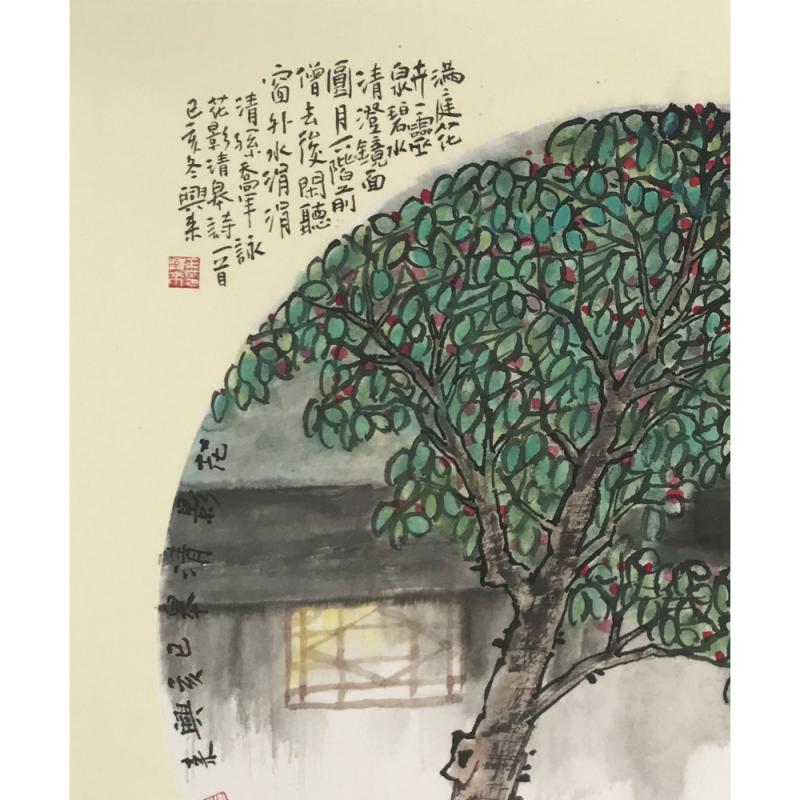 滿庭花
卉一靈
泉碧水
清澄鏡面
圓月上階前
僧去後閑聽
窗外水涓涓
清孫喬年詠
花影清泉詩一首
己亥冬興来
花影清泉己亥興来